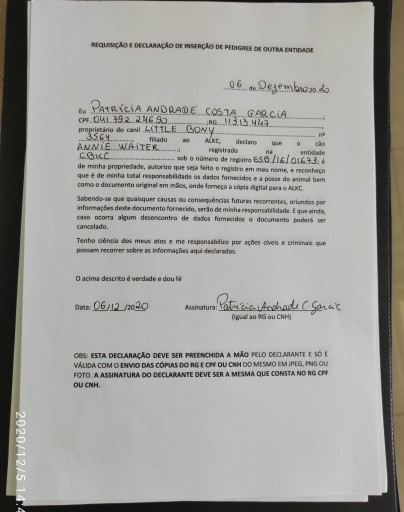 REQUISIÇÃO E DECLARAÇÃO DE INSERÇÃO DE PEDIGREE DE OUTRA ENTIDADE
06 de Dezembro 2020
Eu PATRÍCIA ANDRADE COSTA GARCIA;
CPF 041 792 246 90 ;RG 11313 447 ;
proprietário do canil LITTLE BONY nº
3564 , filiado ao ALKC, declaro que o cão
ANNIE WAITER ; registrado na entidade
CBKC sob o número de registro ESB/16/01673; é
de minha propriedade, autorizo que seja feito o registro em meu nome, e reconheço
que é de minha total responsabilidade os dados fornecidos e a posse do animal bem
como o documento original em mãos, onde forneço a cópia digital para o ALKC.
Sabendo-se que quaisquer causas ou consequências futuras recorrentes, oriundos por
informações deste documento fornecido, serão de minha responsabilidade. E que ainda,
caso ocorra algum desencontro de dados fornecidos o documento poderá ser
cancelado.
Tenho ciência dos meus atos e me responsabilizo por ações cíveis e criminais que
possam recorrer sobre as informações aqui declaradas.
O acima descrito é verdade e dou fé
Data: 06/12/2020 Assinatura: Patrícia Andrade C Garcia
(Igual ao RG ou CNH)
OBS: ESTA DECLARAÇÃO DEVE SER PREENCHIDA A MÃO PELO DECLARANTE E SÓ É
VÁLIDA COM O ENVIO DAS CÓPIAS DO RG E CPF OU CNH DO MESMO EM JPEG, PNG OU
FOTO. A ASSINATURA DO DECLARANTE DEVE SER A MESMA QUE CONSTA NO RG CPF
OU CNH.
2020/12/5 14:4